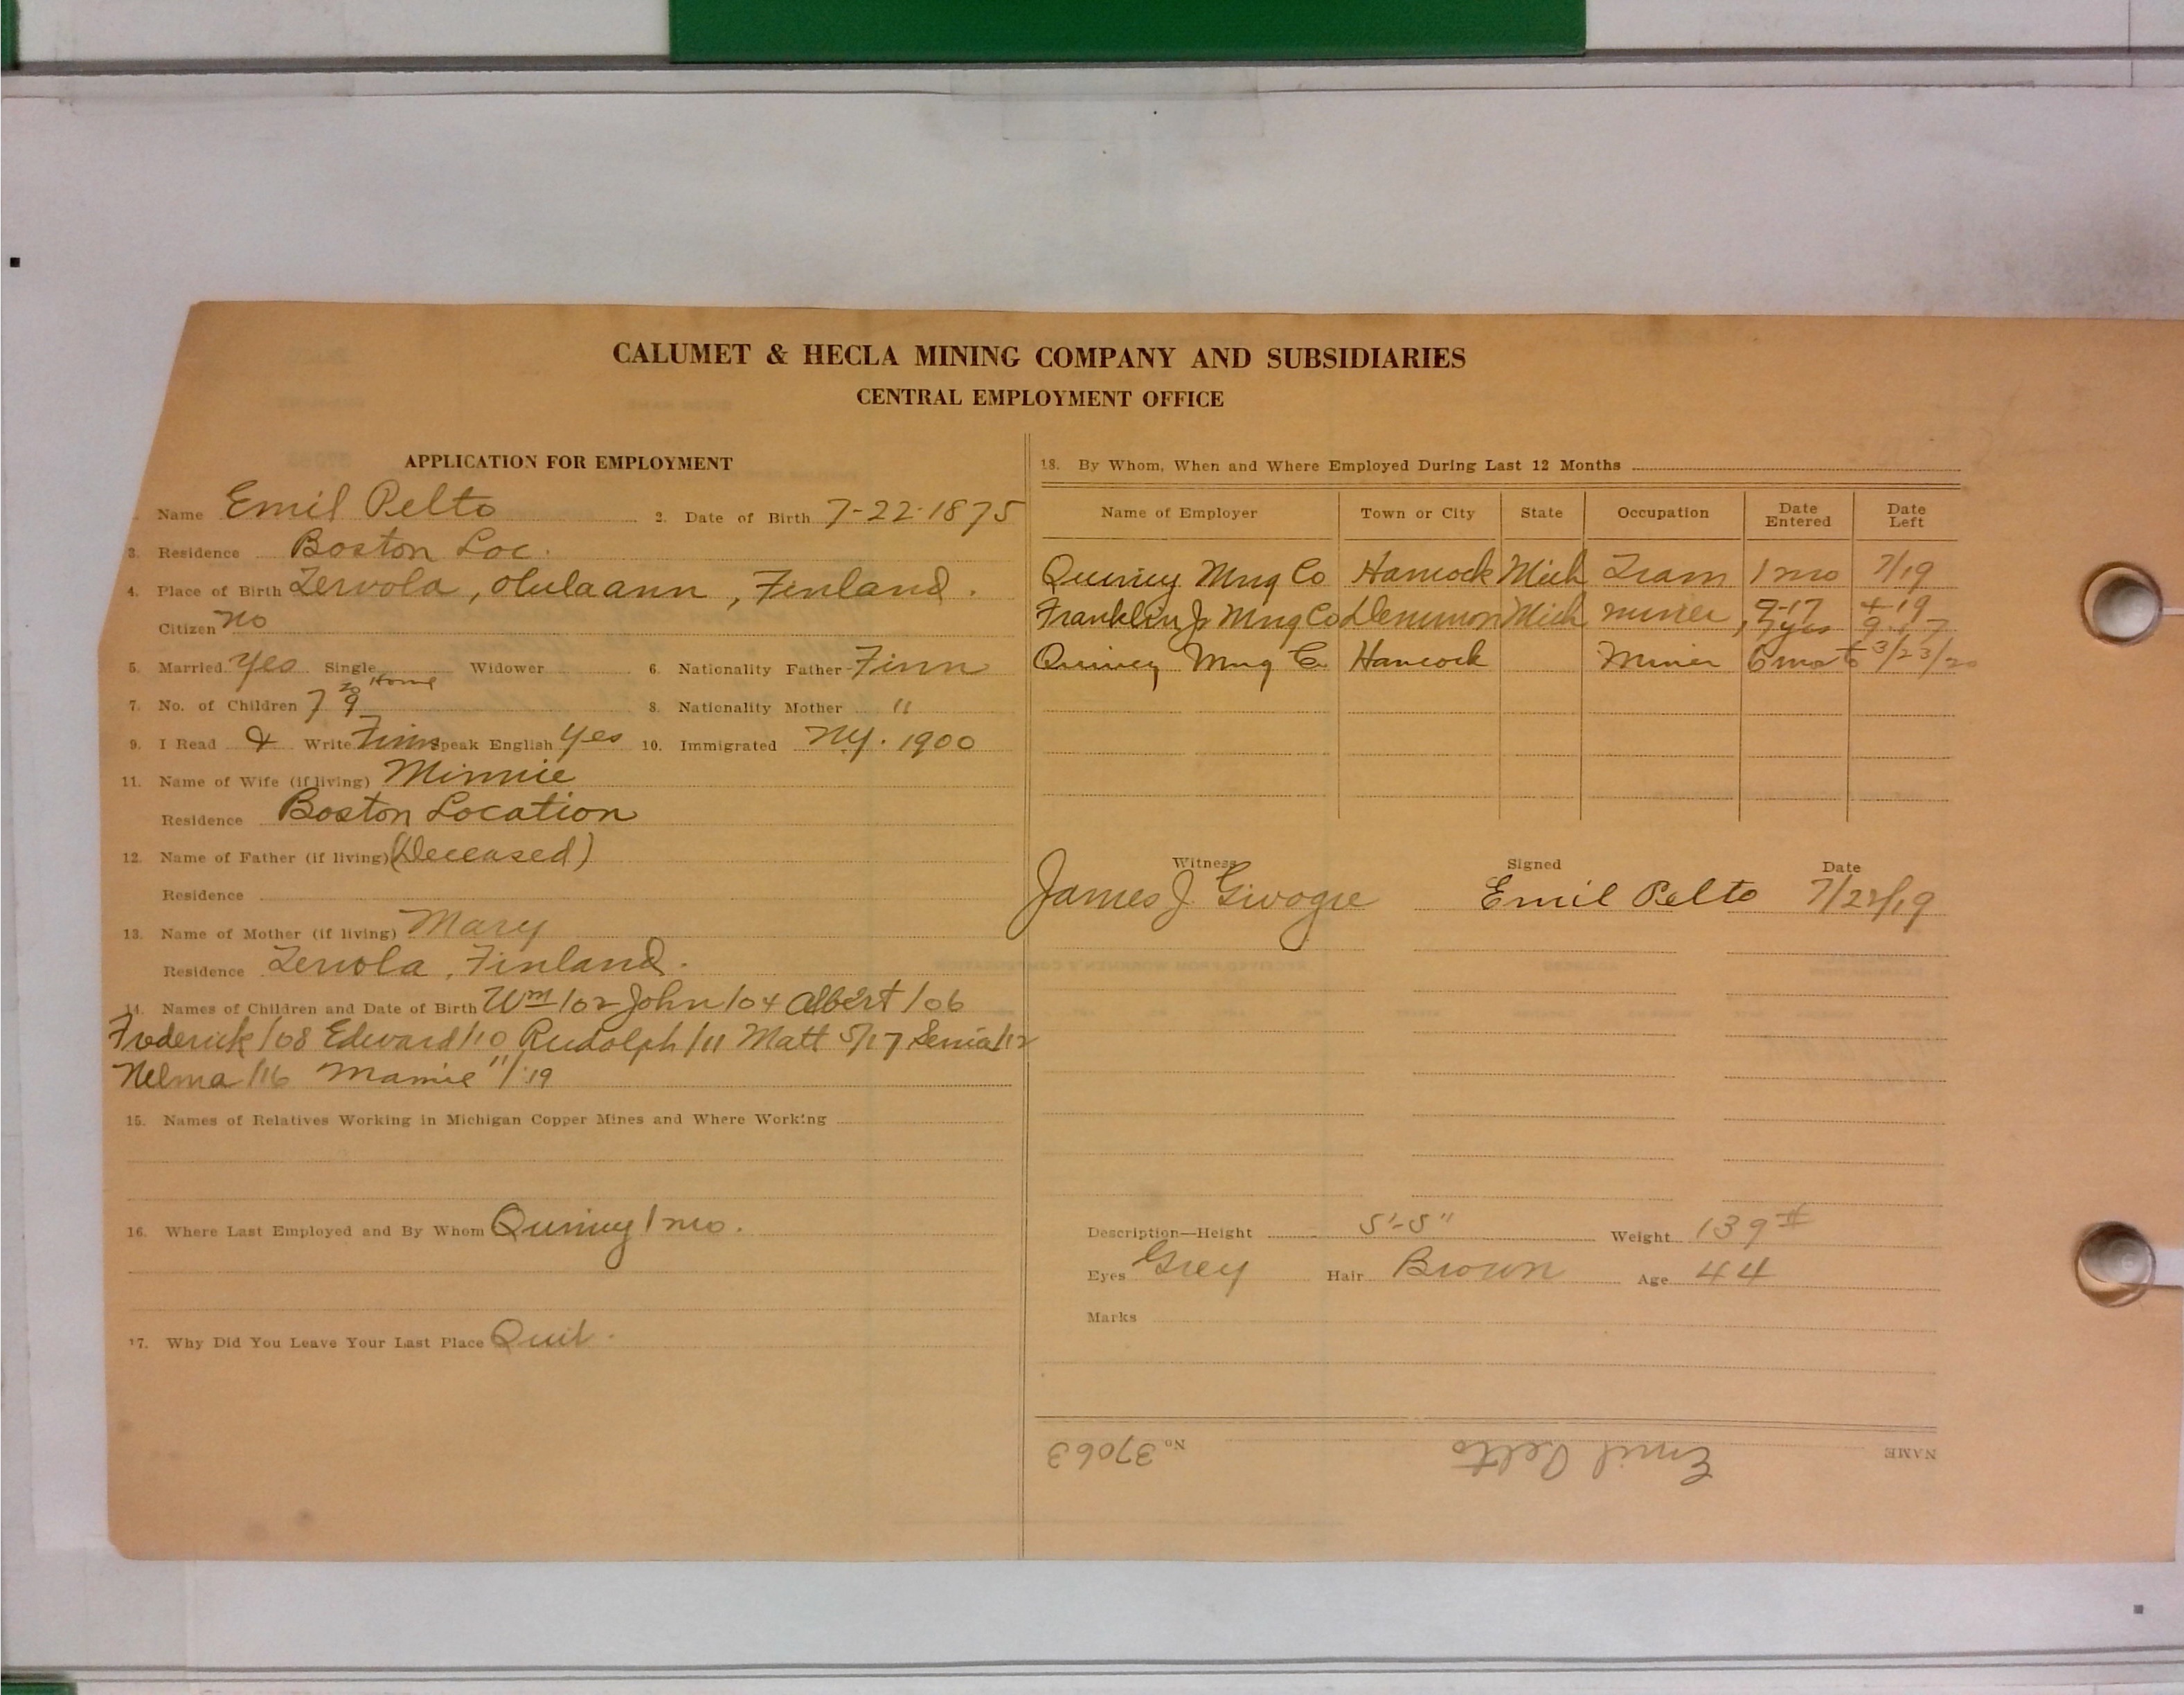 CALUMET & HECLA MINING COMPANY AND SUBSIDIARIES
CENTRAL EMPLOYMENT OFFICE
APPLICATION FOR EMPLOYMENT
Name Emil Pelto 2. Date of Birth 7-22-1875
3. Residence Boston Loc.
4. Place of Birth Tervola, Olulaann, Finland.
Citizen No
5. Married Yes Single Widower 6. Nationality Father Finn
7. No. of Children 7 9 Home 8. Nationality Mother "
9. I Read & Write Finn Speak English Yes 10. Immigrated NY. 1900
11. Name of Wife (if living) Minnie
Residence Boston Location
12. Name of Father (if living) (Deceased)
Residence
13. Name of Mother (if living) Mary
Residence Tervola, Finland.
14. Names of Children and Date of Birth Wm /02 John /04 Albert /06
Frederick /08 Edward /10 Rudolph /11 Matt 5/17 Senia /12
Nelma /16 Mamie "/19
15. Names of Relatives Working in Michigan Copper Mines and Where Working
16. Where Last Employed and By Whom Quincy 1 mo.
17. Why Did You Leave Your Last Place Quit.
18. By Whom, When and Where Employed During Last 12 Months
Name of Employer Town or City State Occupation Date Entered Date Left
Quincy Mng Co Hancock Mich Tram 1 mo 7/19
Franklin Jr Mng Co Demmon Mich miner, 9-17 4-19
7 yrs 9-17
Quincy Mng Co Hancock Miner 6 mo to 3/23/20
Witness Signed Date
James J. Givogre Emil Pelto 7/22/19
Description—Height 5'-5" Weight 139#
Eyes Grey Hair Brown Age 44
Marks
NAME Emil Pelto No. 37063